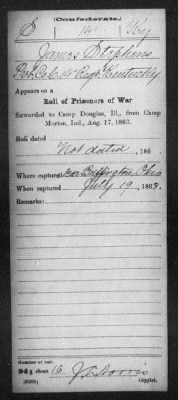 (Confederate.)
S 14 Ky
James Stephens
Pvt, Co. C, 14 Reg't Kentucky
Appears on a
Roll of Prisoners of War
forwarded to Camp Douglas, Ill., from Camp
Morton, Ind., Aug. 17, 1863.
Roll dated
Not dated, 186 .
Where captured Near Buffington, Ohio
When captured July 19, 1863.
Remarks:
Number of roll:
94; sheet 16
Copyist.